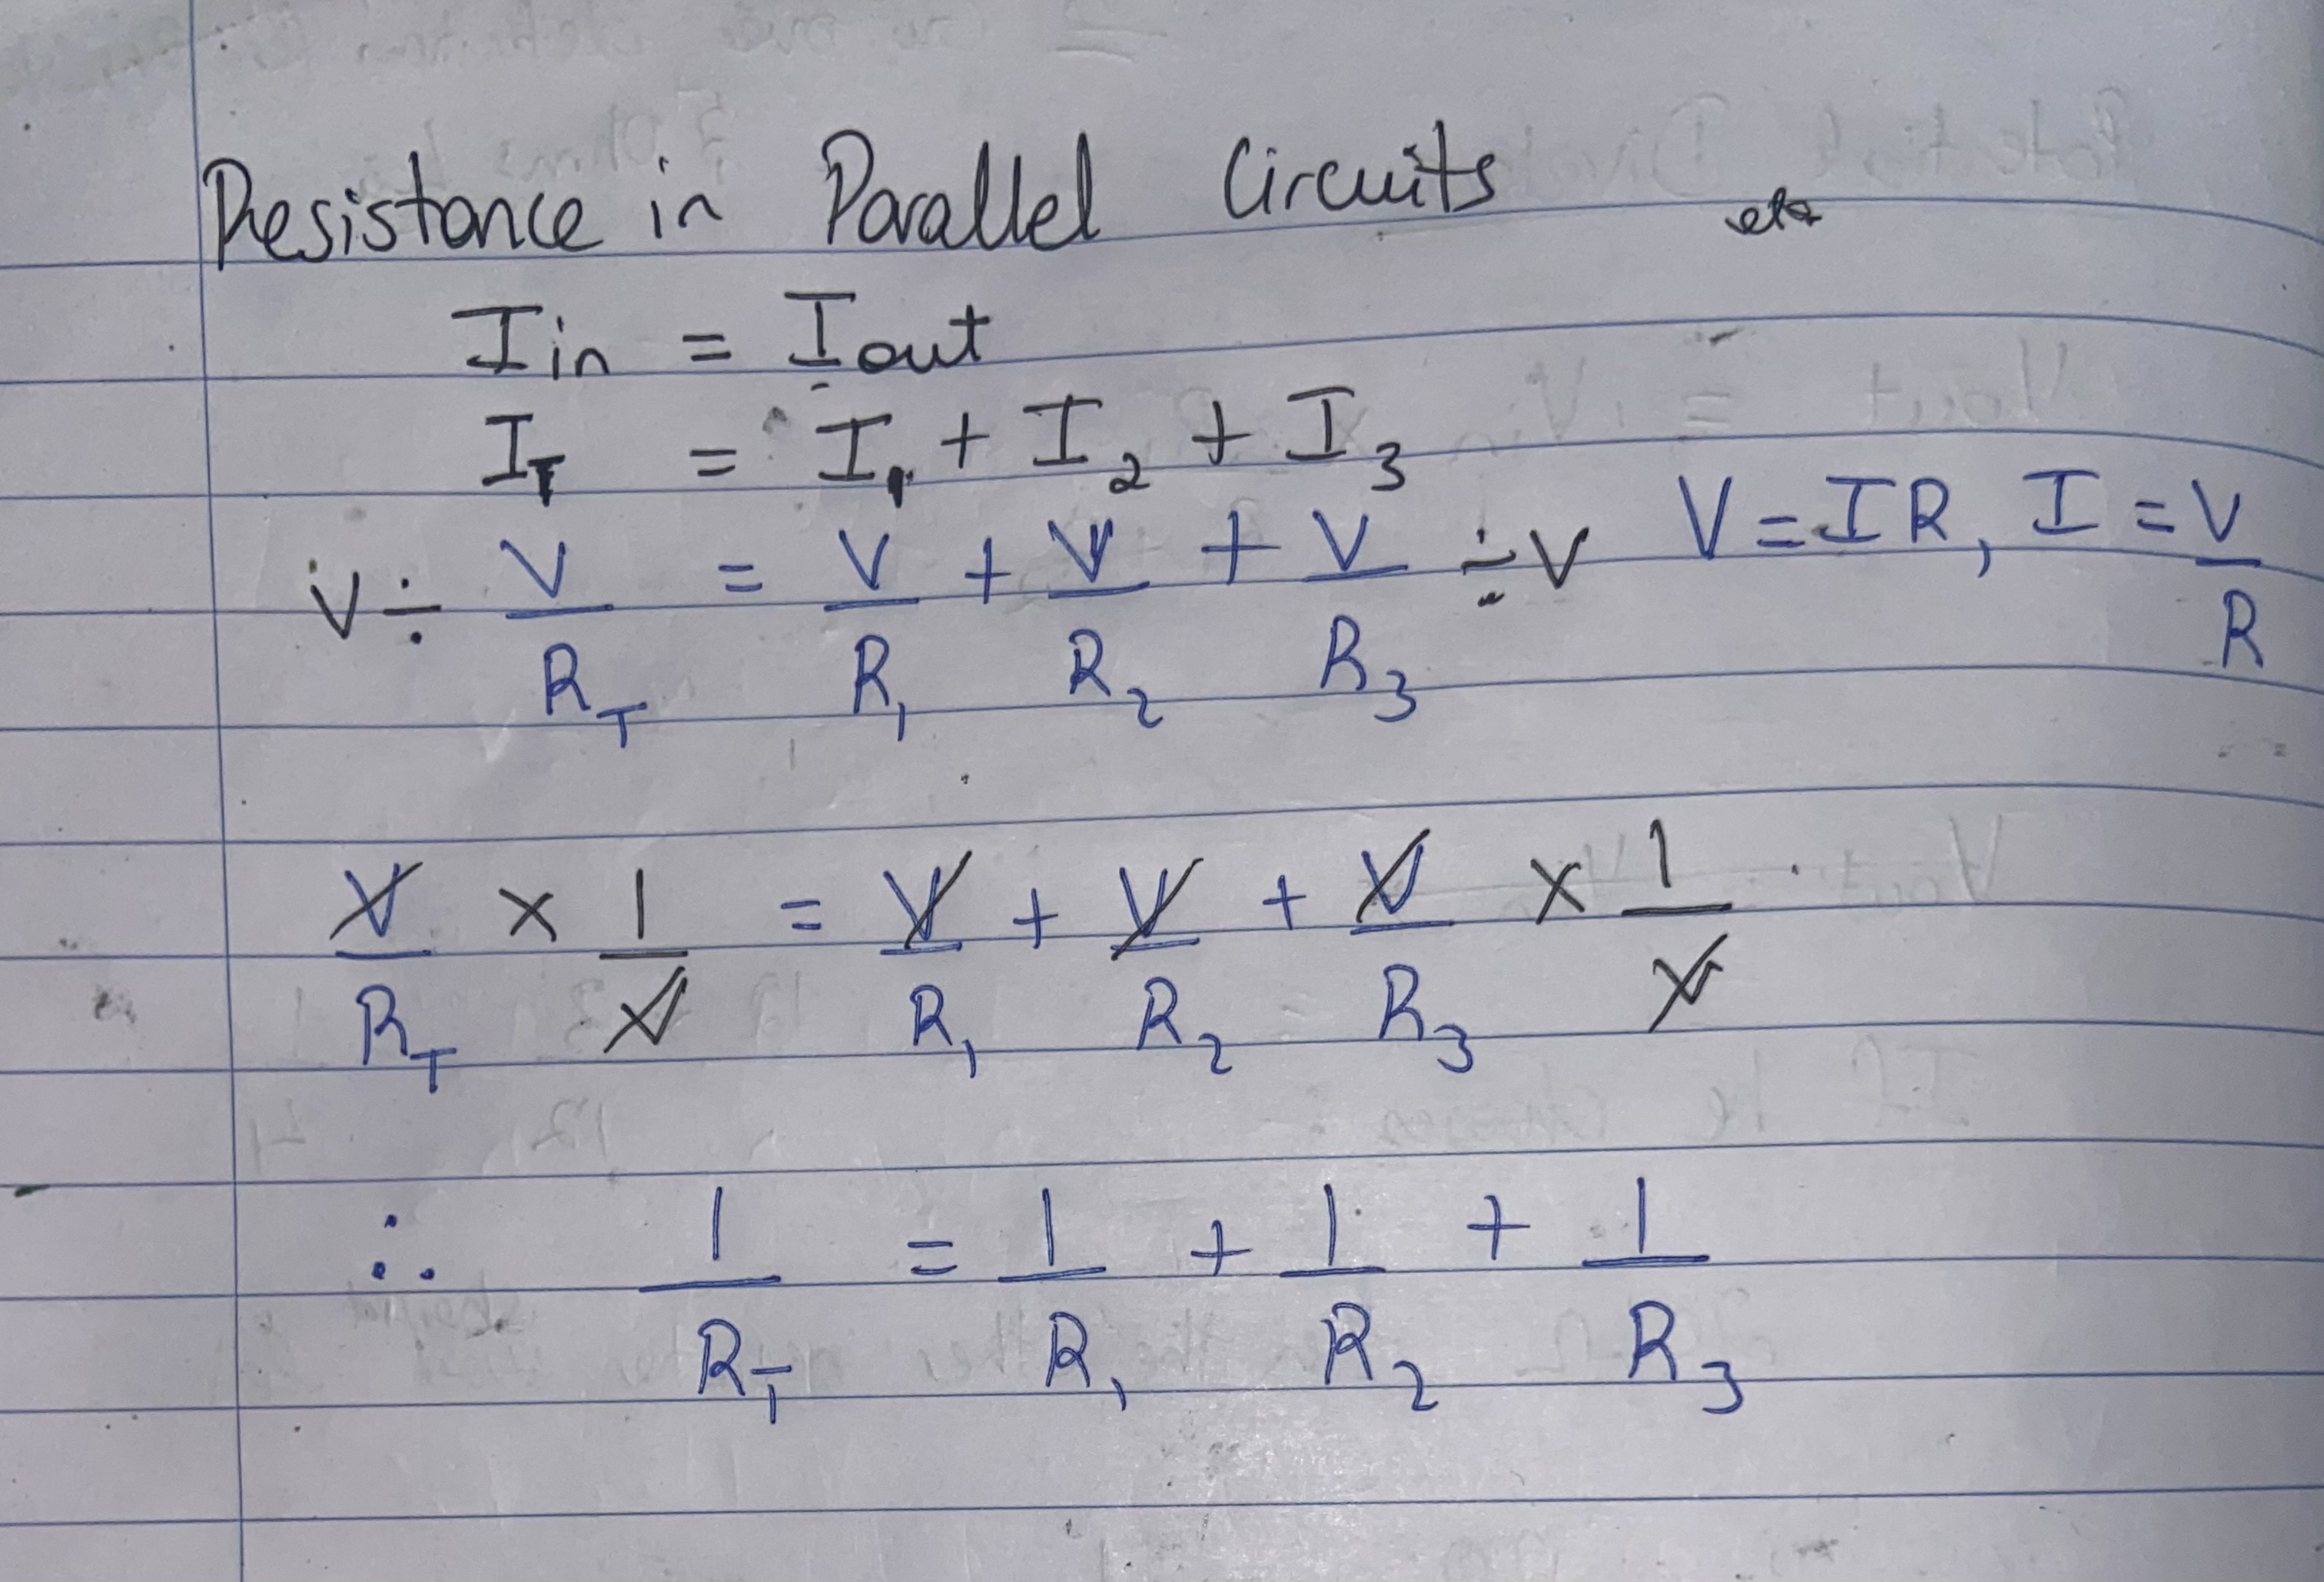 Resistance in Parallel Circuits
Iin = Iout
I_T = I_1 + I_2 + I_3
V ÷ V/R_T = V/R_1 + V/R_2 + V/R_3 ÷ V V = IR, I = V/R
V/R_T × 1/V = V/R_1 + V/R_2 + V/R_3 × 1/V
∴ 1/R_T = 1/R_1 + 1/R_2 + 1/R_3